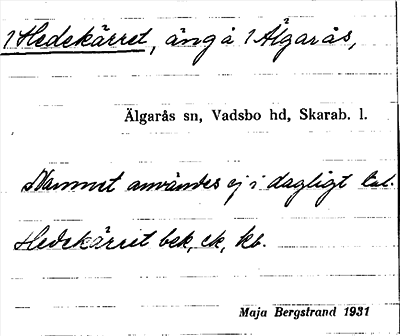 1 Hedekärret, äng å 1 Älgarås,
Älgarås sn, Vadsbo hd, Skarab. l.
Namnet användes ej i dagligt tal.
Hedekärret bek, ek, kb.
Maja Bergstrand 1931